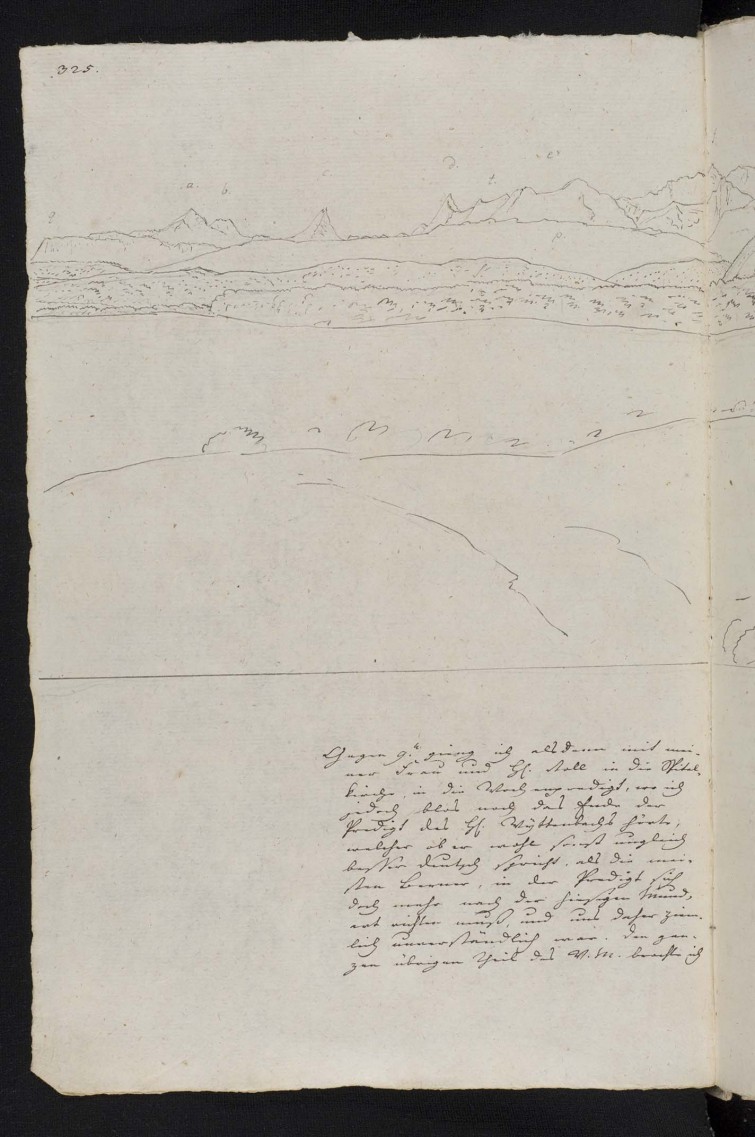 325.
a. b. c d. f. e
g. p.
Gegen 9.u gieng ich alsdenn mit mei-
ner Frau und H. Noll in die Spital-
kirche, in die Wochenpredigt, wo ich
jedoch blos noch das Ende der
Predigt des H. Wyttenbachs hörte,
welcher ob er wohl sonst ungleich
besser deutsch spricht, als die mei-
sten Berner, in der Predigt sich
doch mehr nach der hiesigen Mund-
art richten muß, und uns daher ziem-
lich unverständlich war. Den gan-
zen übrigen Theil des V. M. brachte ich